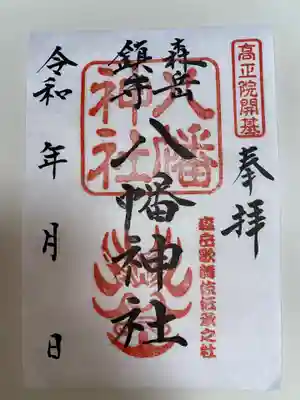 高正院開基
奉拝
森岳
鎮守
八幡神社
八幡
神社
森岳歌舞伎伝承之社
令和 年 月 日